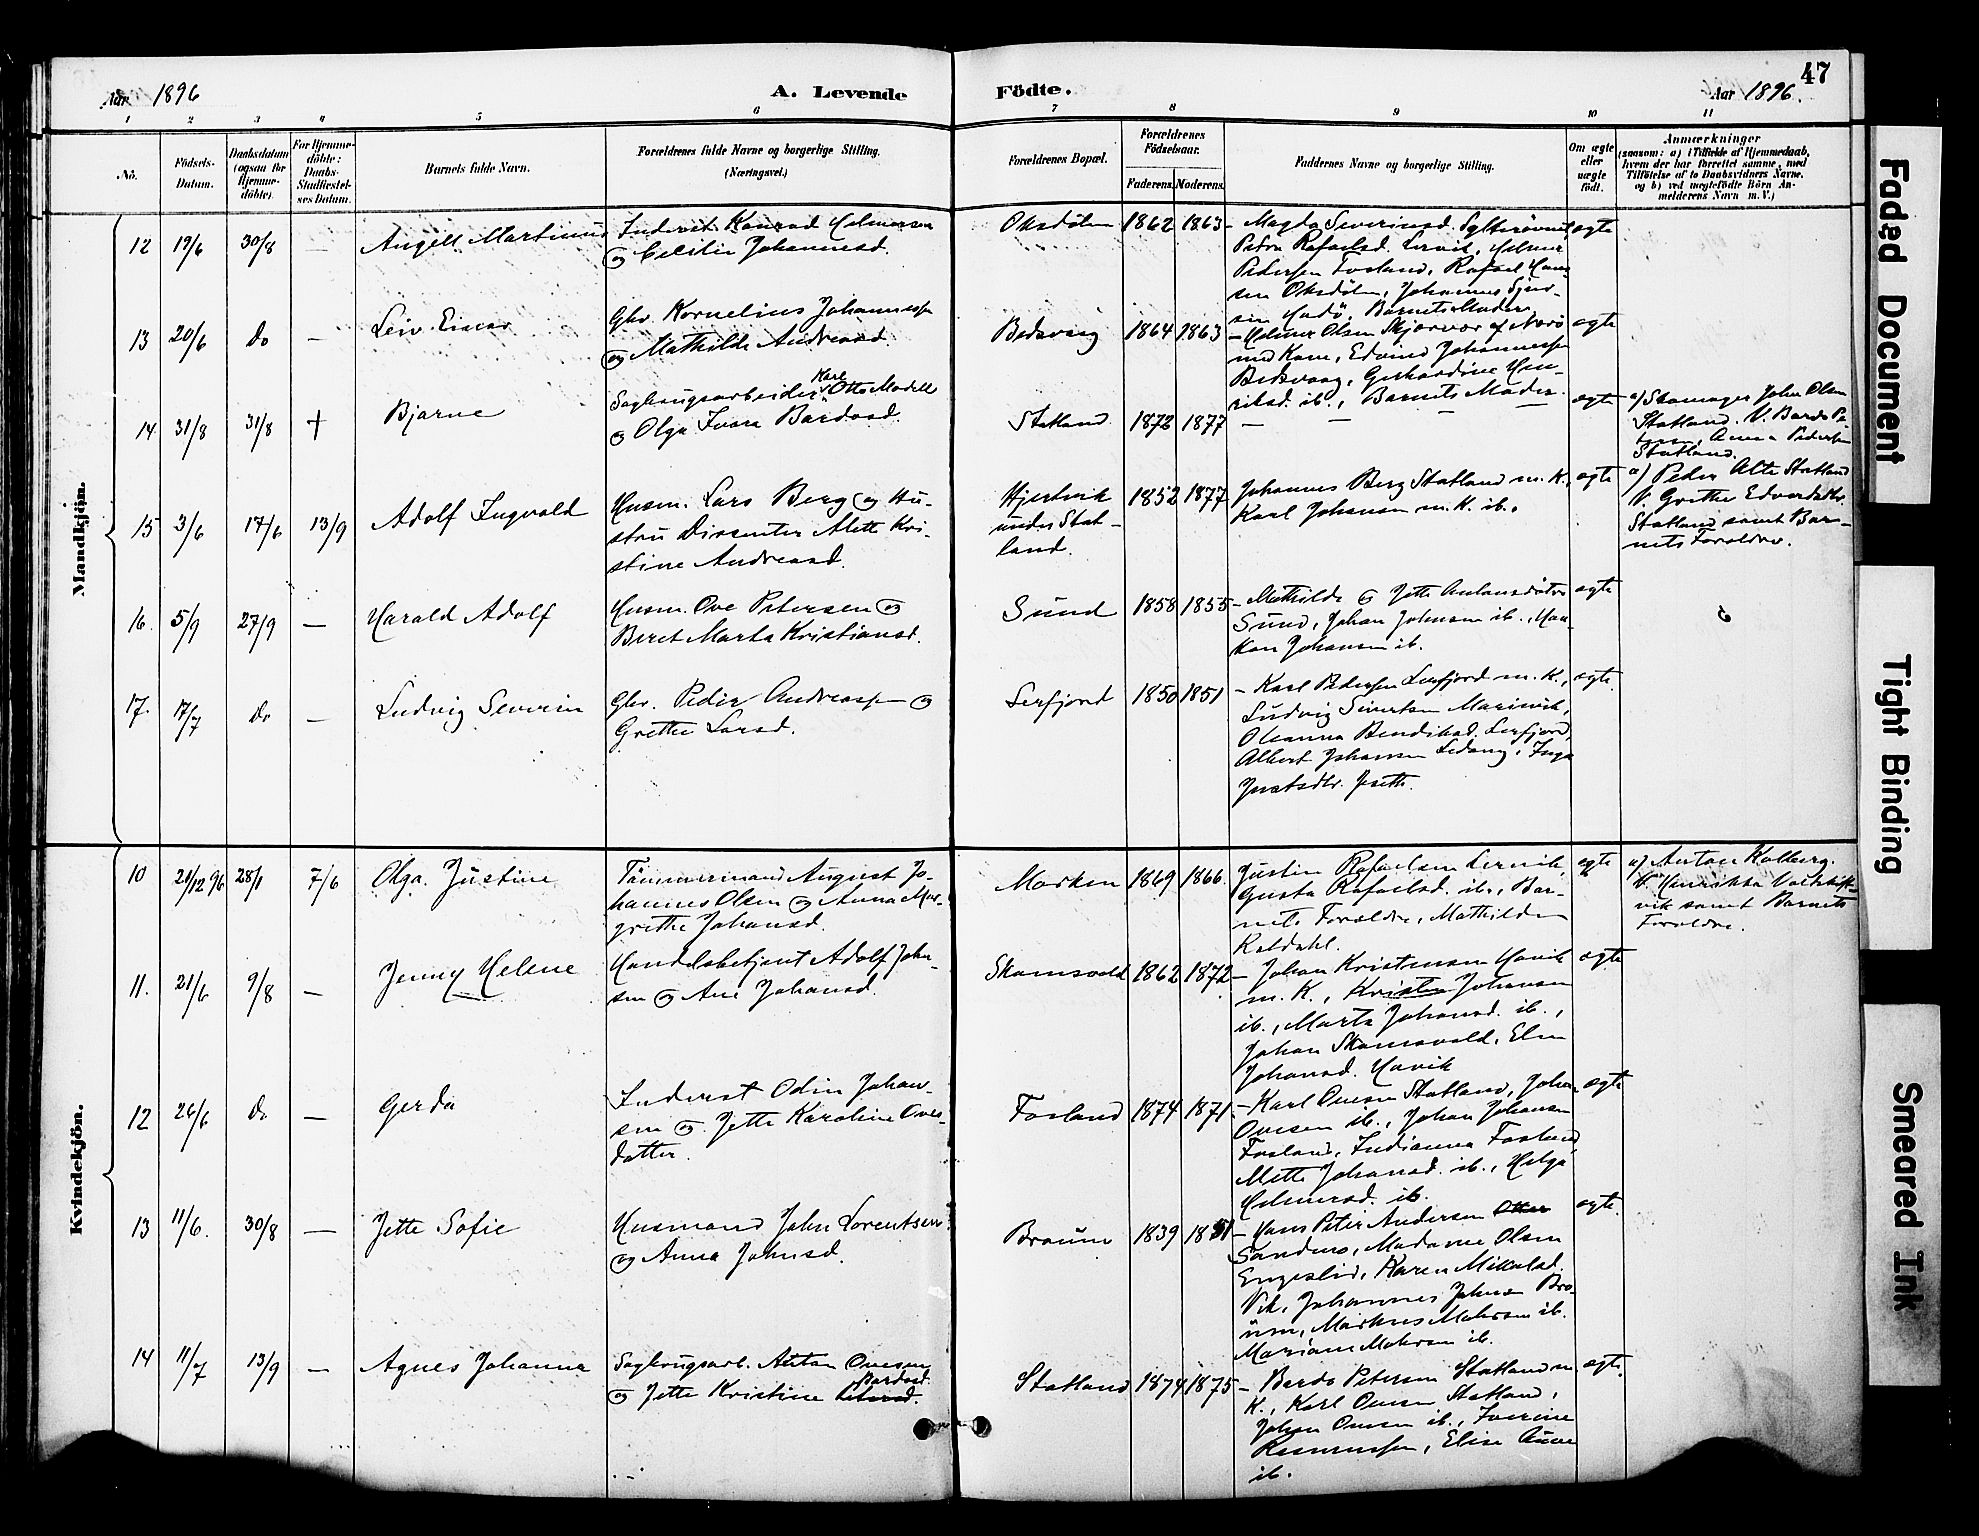 Aar 1896
A. Levende
Födte.
Aar 1896.
47
1 2 3 4 5 6 7 8 9 10 11
No.
Födsels-
Datum.
Daabsdatum
(ogsaa for
Hjemme-
döbte).
For Hjemme-
döbte:
Daabs-
Stadfæstel-
ses Datum.
Barnets fulde Navn.
Forældrenes fulde Navne og borgerlige Stilling.
(Næringsvei.)
Forældrenes Bopæl.
Forældrenes
Födselsaar.
Faderens. Moderens.
Faddernes Navne og borgerlige Stilling.
Om ægte
eller
uægte
födt.
Anmærkninger
(saasom: a) i Tilfælde af Hjemmedaab,
hvem der har forrettet samme, med
Tilföielse af to Daabsvidners Navne,
og b) ved uægtefödte Börn An-
melderens Navn m. V.)
Mandkjön.
12 19/6 30/8 — Angell Martinus
Inderst Konrad Helmersen
og Cecilie Johannesd.
Oksdölen 1862 1863
- Magda Severinsd.
Petra Rafaelsd. Lervik, Helmer
Pedersen Fosland, Rafael Han-
sen Oksdölen, Johannes
Barnets Moder
ægte
13 20/6 Do — Leiv Einar
Gbr. Kornelius Johannessen
og Mathilde Andreasd.
Bedsvaag 1864 1863
- Helmer Olsen Skjærvær af Nærö
med Kone, Edvind Johannessen
Bedsvaag, Gerhardine Hen-
riksd. ib., Barnets Moder.
ægte
14 31/8 31/8 + Bjarne
Sagbrugsarbeider Karl Otto Modell
og Olga Ivara Bardosd.
Statland 1872 1877
— — —
ægte
a) Skomager John Olsen
Statland. V. Bardo Pe-
tersen, Anna Pedersen
Statland.
15 3/6 17/6 13/9 Adolf Ingvald
Husm. Lars Berg og Hu-
stru Dissenter Alett Kri-
stine Andreasd.
Hjertvik
under Stat-
land.
1852 1877
Johannes Berg Statland m. K.,
Karl Johansen m. K. ib.
ægte
a) Peder Alte Statland
V. Grethe Edvardsdtr.
Statland samt Bar-
nets Forældre.
16. 5/9 27/9 — Harald Adolf
Husm. Ove Petersen og
Beret Marta Kristiansd.
Sund 1858 1855
- Mathilde og Jette Antonsdötre
Sund, Johan Johnsen ib., Haa-
kon Johansen ib.
ægte
17. 17/7 Do — Ludvig Severin
Gbr. Peder Andreassen og
Grethe Larsd.
Lerfjord 1850 1851
- Karl Pedersen Lerfjord m. K.,
Ludvig Sivertsen Marievik,
Oleanna Bendiksd. Lerfjord,
Albert Johansen Ledang, Inga
Justsdtr.
ægte.
Kvindekjön.
10 21/12 96 28/1 7/6 Olga Justine
Tömmermand August Jo-
hannes Olsen og Anna Mar-
grethe Johansd.
Morken 1869 1866.
Justin Rafaelsen Lervik,
Gusta Rafaelsd. ib., Bar-
nets Forældre, Mathilde
Kaldahl.
ægte
a) Anton Kolberg.
V. Henrikka
vik samt Barnets
Forældre.
11. 21/6 9/8 — Jenny Helene
Handelsbetjent Adolf John-
sen og Ane Johansd.
Skamsvold 1862 1872
- Johan Kristensen Havik
m. K., Kristen Johansen
ib., Marta Johansd. ib.,
Johan Skamsvold, Elen
Johansd. Havik
ægte
12 26/6 Do — Gerda
Inderst Odin Johan-
sen og Jette Karoline Oves-
datter.
Fosland 1874 1871.
- Karl Ovesen Statland, Johan
Ovesen ib., Johan Johansen
Fosland, Indianna Fosland,
Mette Johansd. ib., Helga
Helmersd. ib.
ægte
13 11/6. 30/8 — Jette Sofie
Husmand John Lorentsen
og Anna Johnsd.
Braunen 1839 1851
- Hans Peter Andersen
Sandnes, Madame Olsen
Engeslid, Karen Mikalsd.
Vik, Johannes Johnsen Bra-
unen, Markus ib.
Mariane ib.
ægte
14 11/7 13/9 — Agnes Johanna
Sagbrugsarb. Anton Ovesen
og Jette Kristine Petersd. Bardosd.
Statland 1874 1875
- Bardo Petersen Statland m.
K., Karl Ovesen Statland,
Johan Ovesen ib., Iverine
Rasmussen, Elise Aune
ib.
ægte.
Faded Document
Tight Binding
Smeared Ink